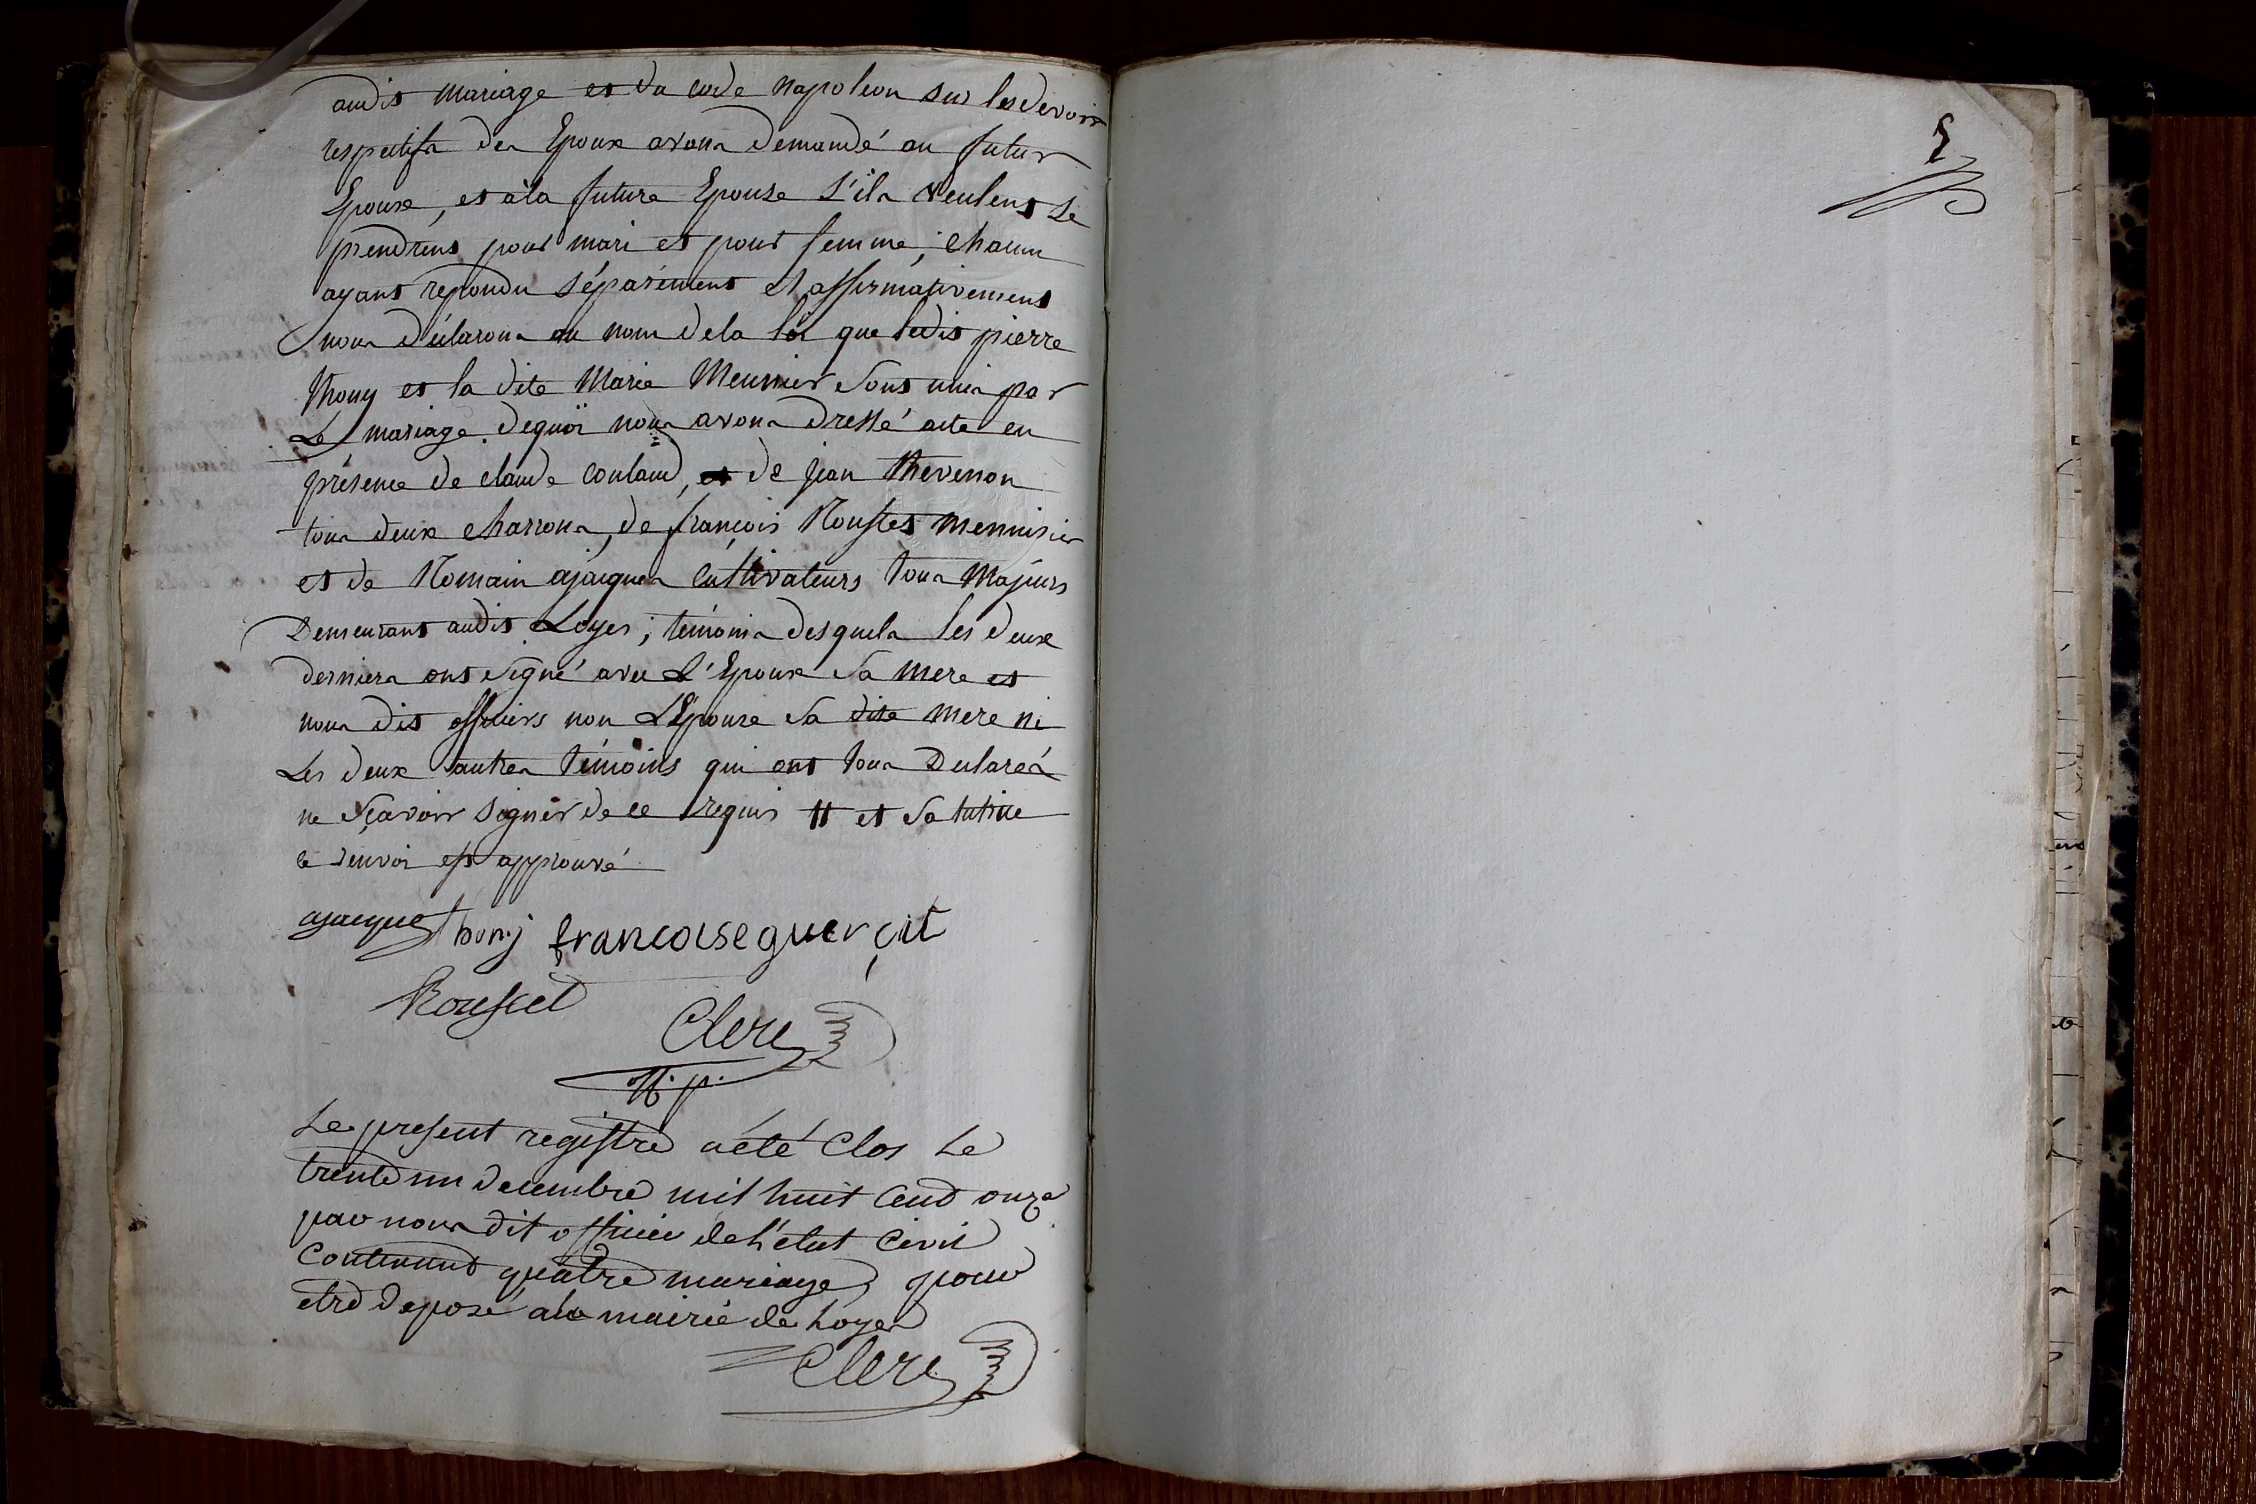 audit mariage et du code napoleon sur les devoirs
respectifs des Epoux avons demandé au futur
Epoux, et à la future Epouse s'ils veulent se
prendrent pour mari et pour femme; chacun
ayant repondu séparément et affirmativement
nous déclarons au nom de la loi que ledit pierre
thony et la dite Marie Meunier sont unis par
Le mariage. de quoi nous avons dressé acte en
présence de claude coulaud, et de jean thevenon
tous deux charrons, de françois Rousset menuisier
et de Romain ajacques cultivateurs tous majeurs
Demeurant audit Loyes; témoins desquels les deux
derniers ont signé avec L'Epoux sa mere et
nous dit officiers non L'Epouse sa dite mere ni
Les deux autres témoins qui ont tous declarés
ne sçavoir signer de ce requis # et sa tutrice
le renvoi est approuvé
ajacques thonj francoise guerçit
Rousset
Clerc
Le present registre a été Clos Le
trente un decembre mil huit Cent onze
par nous dit officier de l'état Civil
Contenant quatre mariages pour
etre deposé a la mairie de Loyes
Clerc
5